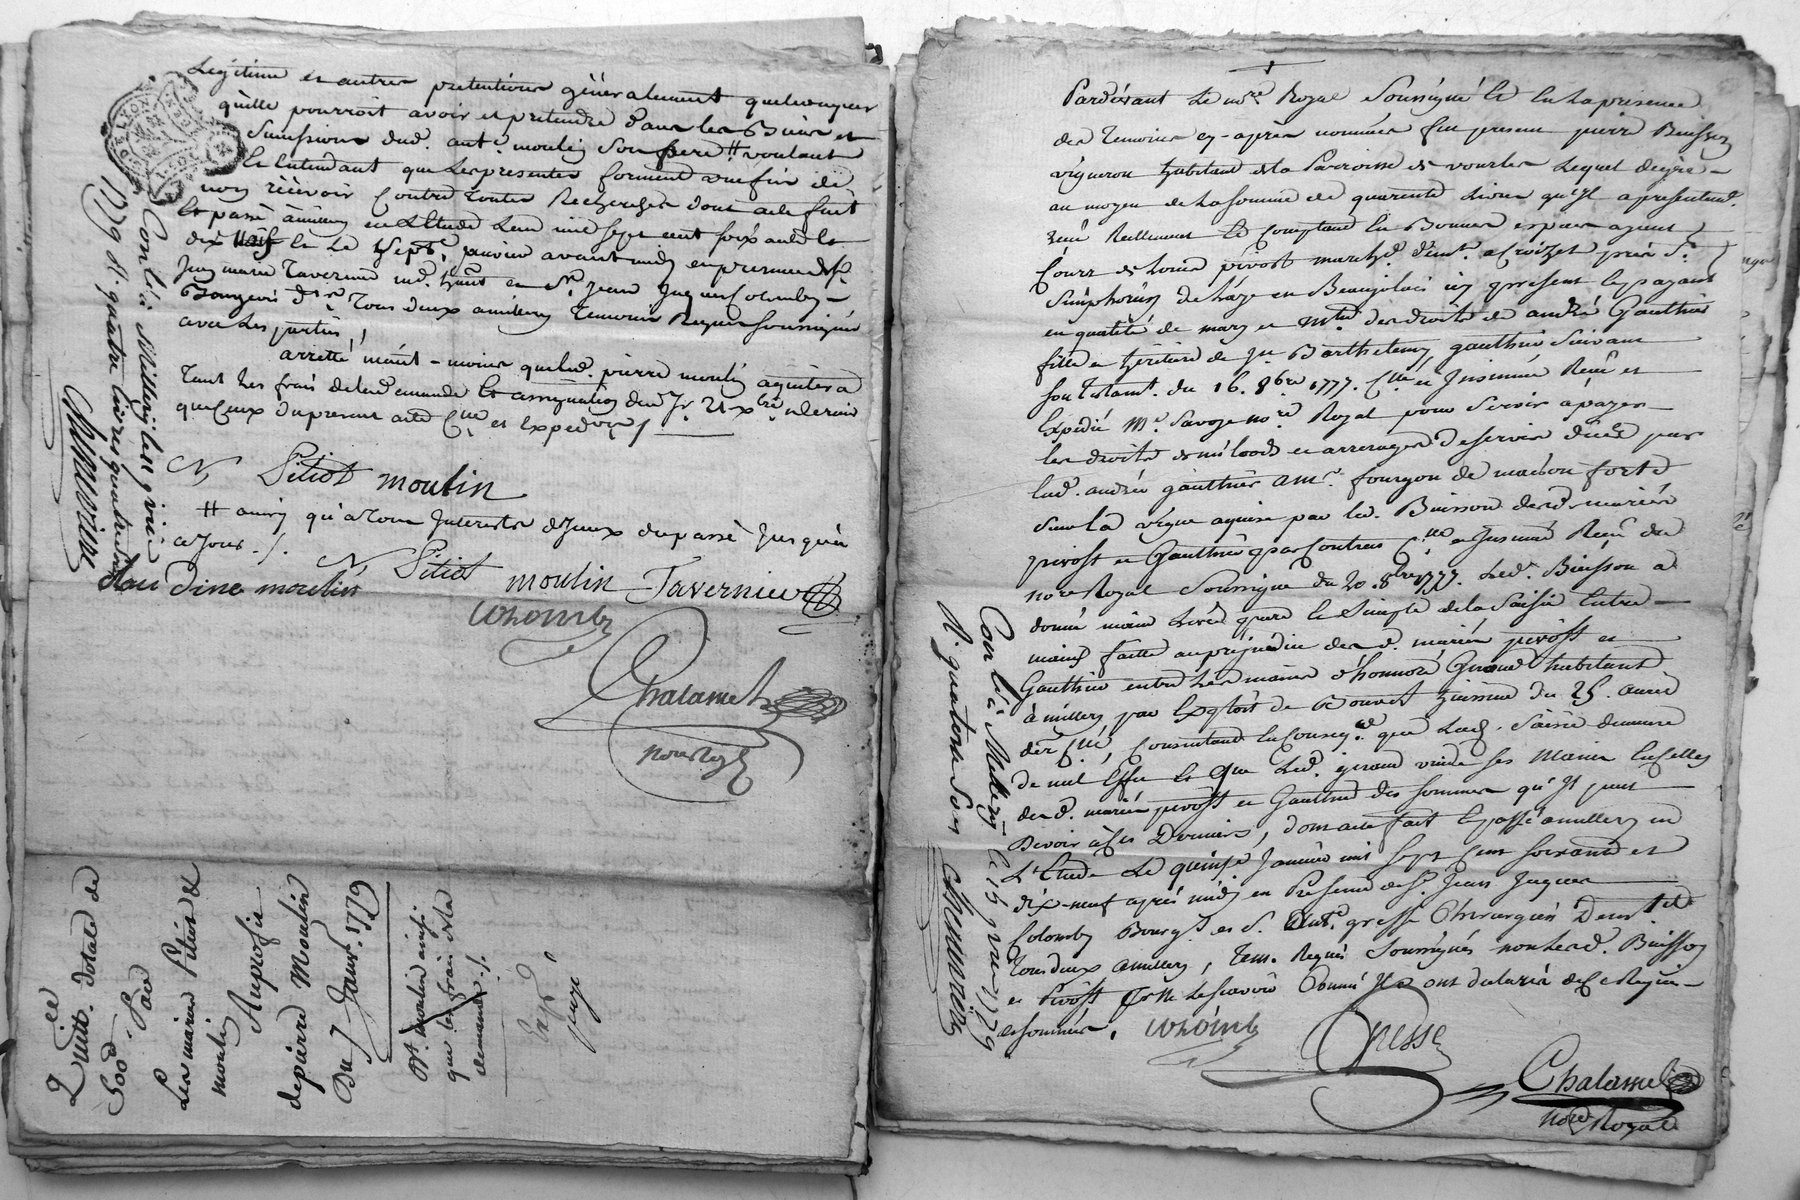 Legitime et autres pretentions généralement quelconques
qu'elle pourroit avoir et pretendre dans les Biens et
Sucessions dud. ant.e moulin Son pere # voulant
et Entendant que les presentes forment une fin de
non récévoir Contre toutes Recherches dont acte fait
Et passé à millery en L'Etude L'an mil sept cent soix.ante et
dix neuf et le Sept.e janvier avant midy en presence de Sr
Jean marie Tavernier et Sr Jean Jaques Colomby
Bourgeois tous deux à millery Temoins Requis soussignés
avec les parties
arretté neant-moins que led. pierre moulin aquittera
Tant les frais de la demande et assignation du 21 xbre dernier
que Ceux du present acte et Expedon
N Pitiot moulin
# ainsy qu'a tous Interests d'Jceux du passé jusqu'à
ce jour ./.
N Pitiot moulin Tavernier
Claudine moulin
Colomb
Chalamel
Nore Royl
LYON
Con.lé à Millery le
1779 R. quatre livres quatre sols
Chemvrine
Quitt.ce dotale de
500
Par
Les mariés Pitiot &
moulin
Au profit
de pierre Moulin
Du 7 Janv. 1779
moulin
que les frais de la
demande ./.
Pardevant Le nore Royal Soussigné Et En La presence
des Temoins cy-après nommés fut present pierre Buisson
vigneron habitant de la Parroisse de vourles Lequel de gré
au moyen de La somme de quarente Livres qu'Jl a presentemt
reçu Réellement Et Comptant En Bonnes especes ayant
Cours de Louis pivost march.d à Croizet près St
Simphorien de Laye en Beaujolois icy present Le payant
en qualité de mary et mtre des droits de andrée Gauthier
fille et héritière de Jn Barthelemy gauthier Suivant
Son Testamt. du 16. 8bre 1777. C.llé et Jnsinué Reçu et
Expedié Me. Savoye nore Royal pour Servir à payer
les droits de mi-loods et arrerages de servis dûs par
lad. andrée gauthier à Mr. fourgon de maison forte
Sur La vigne aquise par led. Buisson desd. mariés
pivost et Gauthier par Contrat C.llé et Jnsinué Reçu du
nore Royal Soussigné du 20. 8bre 1777. Led. Buisson a
donné main Levée pure et Simple de la Saisie Entre
mains faitte au prejudice desd. mariés pivost et
Gauthier entre Les mains d'honnoré Giraud habitant
à millery par Exploit de Bouvet huissier du 25. aoust
der C.llé, Consentant En Conseq.ce que Lad. Saisie demeure
de nul Effet Et Que Led. giraud vuide ses Mains En Celles
desd. mariés pivost et Gauthier des sommes qu'Jl peut
Devoir à Ces Derniers, dont acte fait Et passé à millery en
L'Etude Le quinze Janvier mil Sept Cent Soixante et
dix-neuf après midy en Presence de Sr. Jean Jaques
Colomby Bourg.s et S. Ant.e gresse Chirurgien
Tous deux à millery, Tem. Requis Soussignés non Lesd. Buisson
et Pivost pour ne Le sçavoir Comme Jls ont declaré de Ce Requis
et sommés.
Colomb
Gresse
Chalamel
Nore Royal
Con.lé à Millery le 15 janvier 1779
R. quatorze sols
Chemvrine